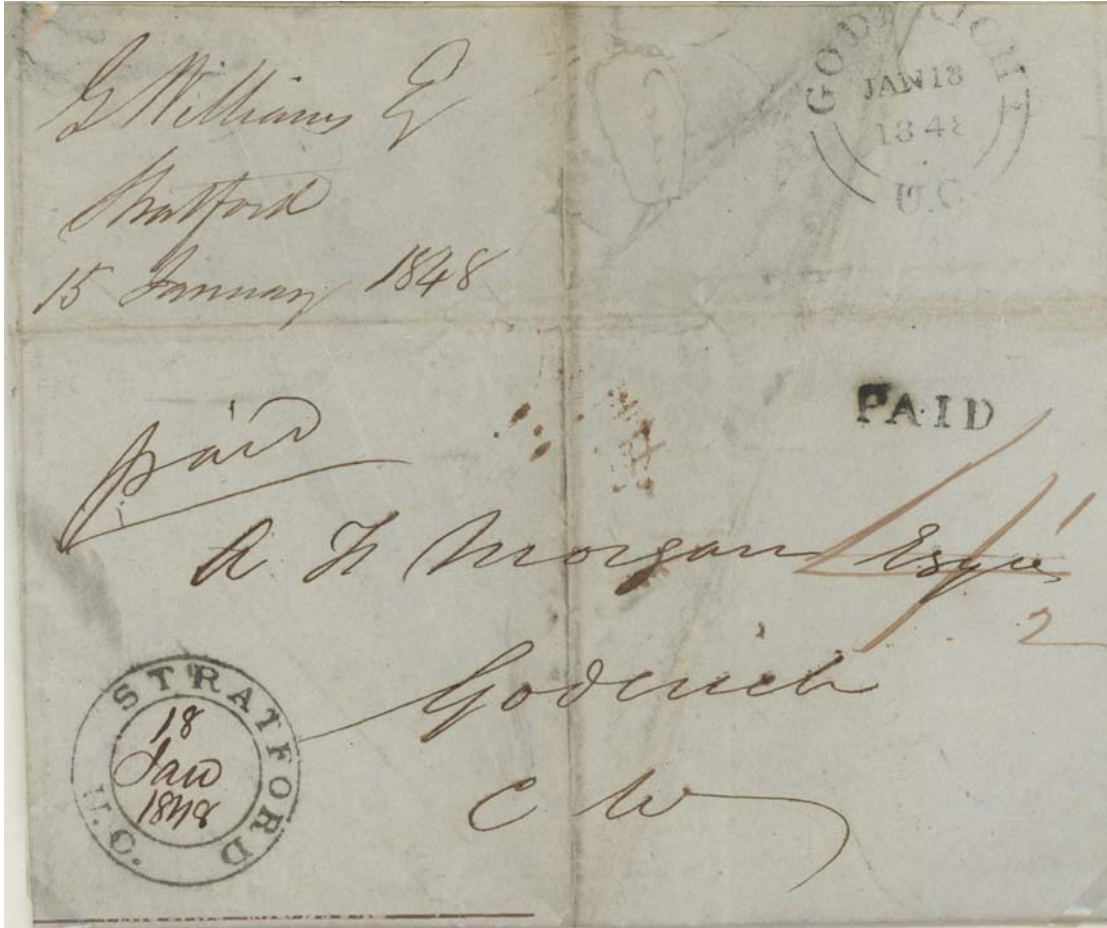 G Williams Eq
Stratford
15 January 1848
GODERICH
JAN 18
1848
U.C.
PAID
paid
A F Morgan Esqre
Goderich
C W
STRATFORD
18
Jan
1848
U.C.